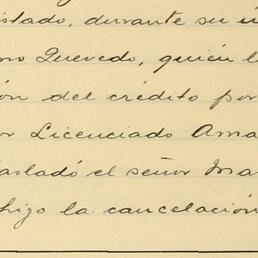 istado, durante su ú
no Quevedo, quién l
ón del crédito por
or Licenciado Ama
rasladó el señor Ma
hizo la cancelación